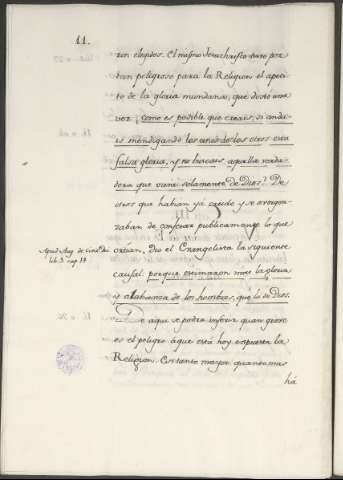 11.
ron elegidos. El mismo Jesuchristo tuvo por
tan peligroso para la Religion el apeti-
to de la gloria mundana, que dixo una
vez: como es posible que creais, si anda-
is mendigando los unos de los otros esta
falsa gloria, y no buscais aquella verda-
dera que viene solamente de Dios? De
otros que habian ya creido y se avergon-
zaban de confesar publicamente lo que
Apud Aug. de Civit. Dei
lib. 5 cap. 14
creian, Dio el Evangelista la siguiente
causal: porque estimaron mas la gloria
y alabanza de los hombres, que la de Dios.
De aqui se podrá inferir quan grave
es el peligro á que está hoy expuesta la
Religion. Es tanto mayor quanto mas
há